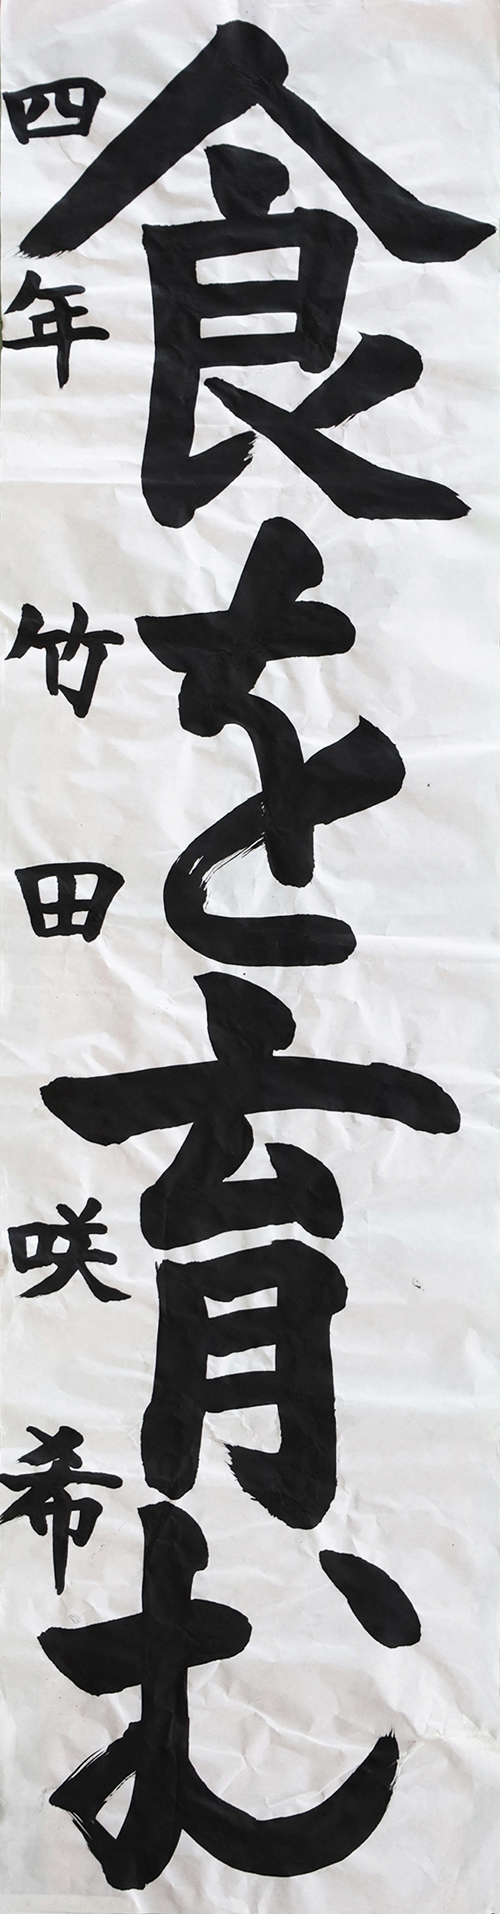 食を育む
四年 竹田咲希